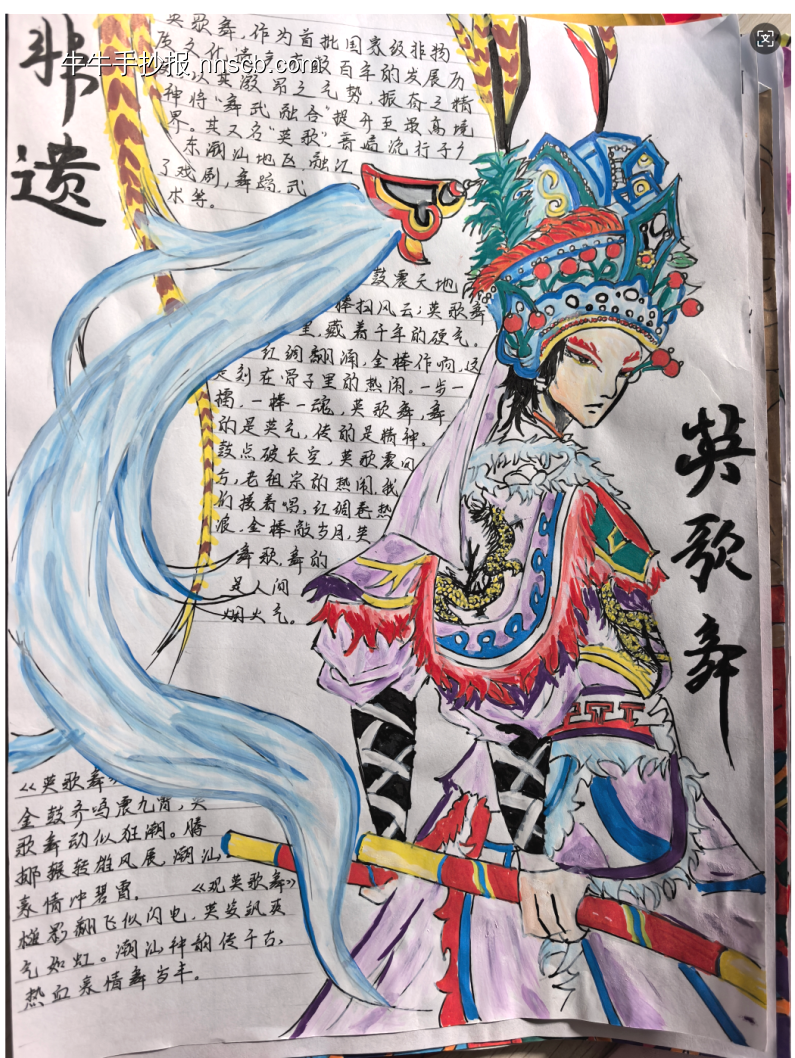 非遗
牛牛手抄报 nnscb.com
英歌舞,作为首批国家级非物
质文化遗产
百年的发展历
以其激昂之气势,振奋之精
神将“舞武融合”提升至最高境
界。其又名“英歌”,普遍流行于广
东潮汕地区,融汇
了戏剧,舞蹈,武
术等。
鼓震天地,
棒扫风云;英歌舞
里,藏着千年的硬气。
红绸翻涌,金棒作响,这
是刻在骨子里的热闹。一步一
擂,一棒一魂,英歌舞,舞
的是英气,传的是精神。
鼓点破长空,英歌震四
方,老祖宗的热闹,我
们接着唱。红绸卷热
浪,金棒敲岁月,英
歌舞,舞的
是人间
烟火气。
英歌舞
《英歌舞》
金鼓齐鸣震九霄,英
歌舞动似狂潮。腾
挪辗转雄风展,潮汕
豪情冲碧霄。 《观英歌舞》
槌影翻飞似闪电,英姿飒爽
气如虹。潮汕神韵传千古,
热血豪情舞当年。